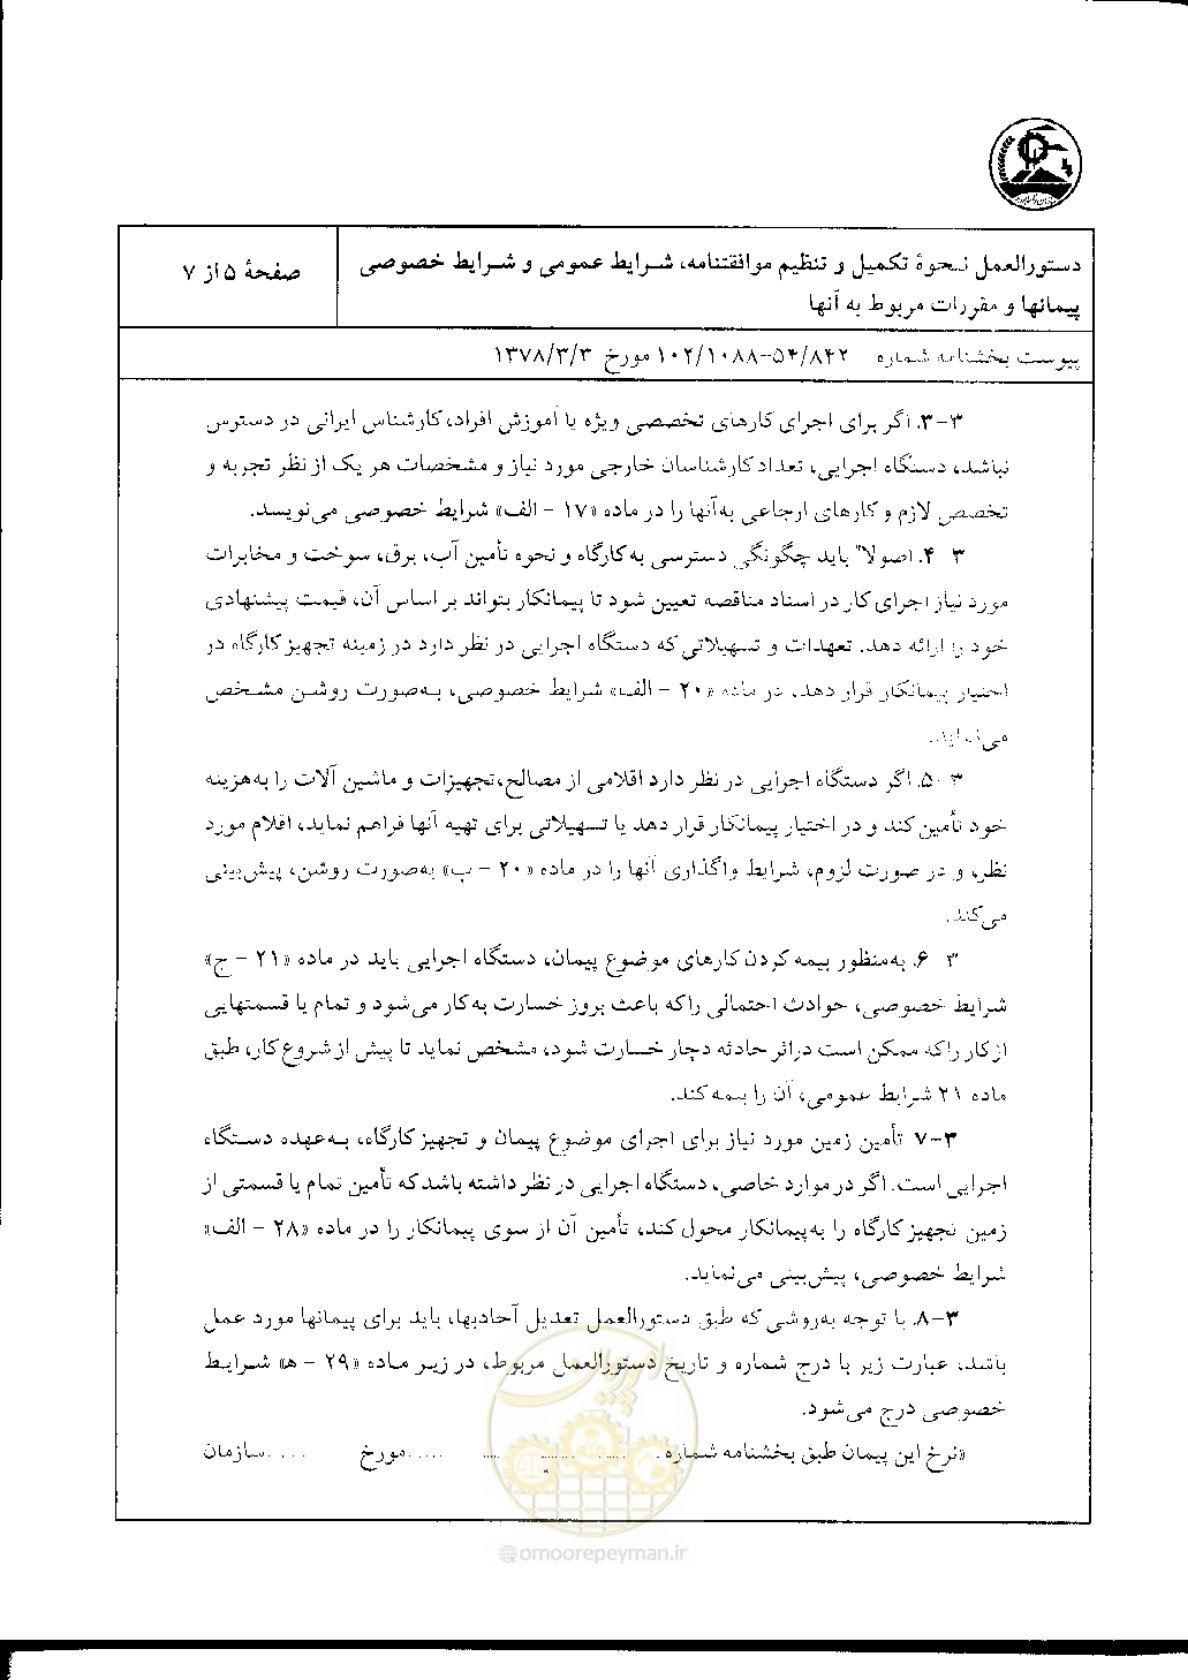 دستورالعمل نحوۀ تکمیل و تنظیم موافقتنامه، شرایط عمومی و شرایط خصوصی
پیمانها و مقررات مربوط به آنها
صفحۀ ۵ از ۷
پیوست بخشنامه شماره ۱۰۲/۱۰۸۸-۵۴/۸۴۲ مورخ ۱۳۷۸/۳/۳
۳-۳. اگر برای اجرای کارهای تخصصی ویژه یا آموزش افراد، کارشناس ایرانی در دسترس
نباشد، دستگاه اجرایی، تعداد کارشناسان خارجی مورد نیاز و مشخصات هر یک از نظر تجربه و
تخصص لازم و کارهای ارجاعی به‌آنها را در ماده «۱۷ - الف» شرایط خصوصی می‌نویسد.
۳ ۴. اصولا" باید چگونگی دسترسی به‌کارگاه و نحوه تأمین آب، برق، سوخت و مخابرات
مورد نیاز اجرای کار در اسناد مناقصه تعیین شود تا پیمانکار بتواند بر اساس آن، قیمت پیشنهادی
خود را ارائه دهد. تعهدات و تسهیلاتی که دستگاه اجرایی در نظر دارد در زمینه تجهیز کارگاه در
اختیار پیمانکار قرار دهد، در ماده «۲۰ - الف» شرایط خصوصی، به‌صورت روشن مشخص
می‌نماید.
۳ ۵. اگر دستگاه اجرایی در نظر دارد اقلامی از مصالح، تجهیزات و ماشین آلات را به‌هزینه
خود تأمین کند و در اختیار پیمانکار قرار دهد یا تسهیلاتی برای تهیه آنها فراهم نماید، اقلام مورد
نظر، و در صورت لزوم، شرایط واگذاری آنها را در ماده «۲۰ - ب» به‌صورت روشن، پیش‌بینی
می‌کند.
۳ ۶. به‌منظور بیمه کردن کارهای موضوع پیمان، دستگاه اجرایی باید در ماده «۲۱ - ج»
شرایط خصوصی، حوادث احتمالی راکه باعث بروز خسارت به‌کار می‌شود و تمام یا قسمتهایی
از کار راکه ممکن است دراثر حادثه دچار خسارت شود، مشخص نماید تا پیش از شروع کار، طبق
ماده ۲۱ شرایط عمومی، آن را بیمه کند.
۳-۷ تأمین زمین مورد نیاز برای اجرای موضوع پیمان و تجهیز کارگاه، به‌عهده دستگاه
اجرایی است. اگر در موارد خاصی، دستگاه اجرایی در نظر داشته باشد که تأمین تمام یا قسمتی از
زمین تجهیز کارگاه را به‌پیمانکار محول کند، تأمین آن از سوی پیمانکار را در ماده «۲۸ - الف»
شرایط خصوصی، پیش‌بینی می‌نماید.
۳-۸. با توجه به‌روشی که طبق دستورالعمل تعدیل آحادبها، باید برای پیمانها مورد عمل
باشد، عبارت زیر با درج شماره و تاریخ دستورالعمل مربوط، در زیر ماده «۲۹ - ه» شرایط
خصوصی درج می‌شود.
«نرخ این پیمان طبق بخشنامه شماره ........ مورخ ........ سازمان
امور پیمان
@omoorepeyman.ir